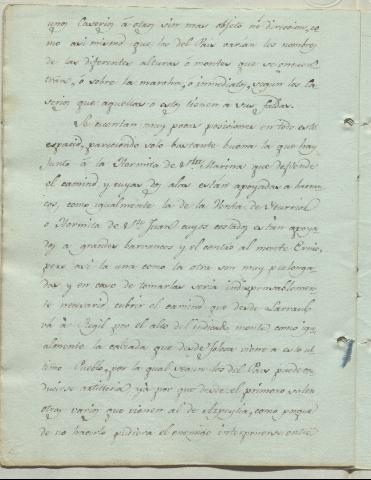 unos Caserios á otros sin mas objeto ni direccion, co
mo asi mismo que los del Pais varian los nombres
de las diferentes alturas ó montes que se encuen
tran, ó sobre la marcha, ó inmediatos, segun los Ca
serios que aquellas ó estos tienen á sus faldas.
Se cuentan muy pocas posiciones en todo este
espacio, pareciendo solo bastante buena la que hay
junto á la Hermita de Sta. Marina que defiende
el camino, y cuyas dos alas estan apoyadas a barran
cos, como igualmente la de la Venta de Iturrioz
ó Hermita de Sn. Juan cuyos costados estan apoya
dos a grandes barrancos y el centro al monte Ernio,
pero asi la una como la otra son muy prolonga
das y en caso de tomarlas seria indispensablemen
te necesario cubrir el camino que desde Larraul
vá á Regil por el alto del indicado monte, como igu
almente la calzada que desde Tolosa viene a este ul
timo Pueblo, por la qual segun los del Pais puede con
ducirse artilleria, ya por que desde el primero salen
otros varios que vienen al de Azpeytia, como porque
de no hacerlo pudiera el enemigo interponerse entre